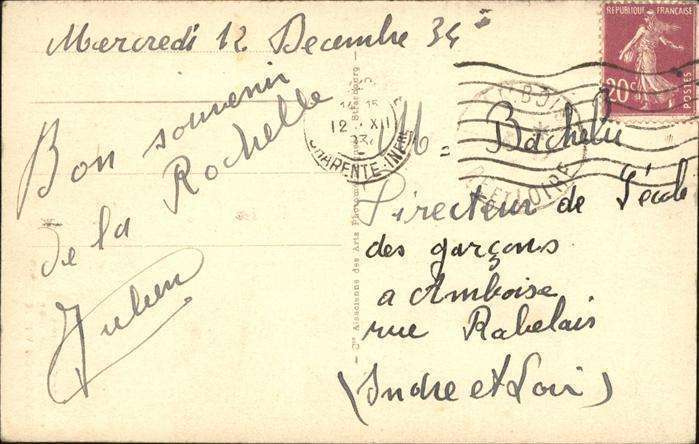 Mercredi 12 Decembre 34
Bon souvenir
de la Rochelle
Julien
REPUBLIQUE FRANÇAISE
20c
POSTES
12 XII
CHARENTE-INFRE
ET LOIRE
M. Bachelu
Directeur de l'école
des garçons
a Amboise
rue Rabelais
(Indre et Loir)
Cie Alsacienne des Arts Photomécaniques Strasbourg